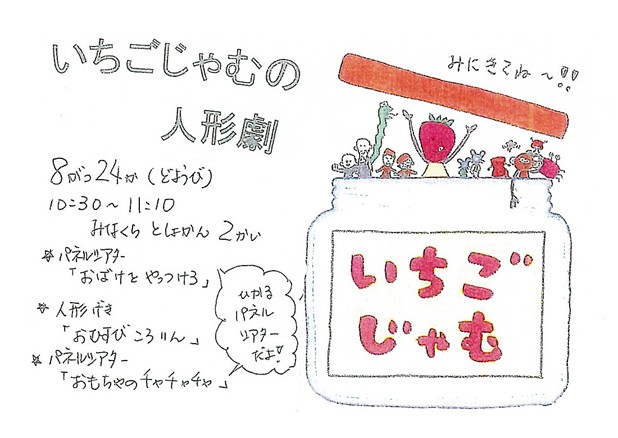 いちごじゃむの
人形劇
みにきてね～!!
8がつ24か(どようび)
10:30～11:10
みなくち としょかん 2かい
☆パネルシアター
「おばけを やっつけろ」
☆人形げき
「おむすび ころりん」
☆パネルシアター
「おもちゃのチャチャチャ」
ひかる
パネル
シアター
だよ!
いちご
じゃむ